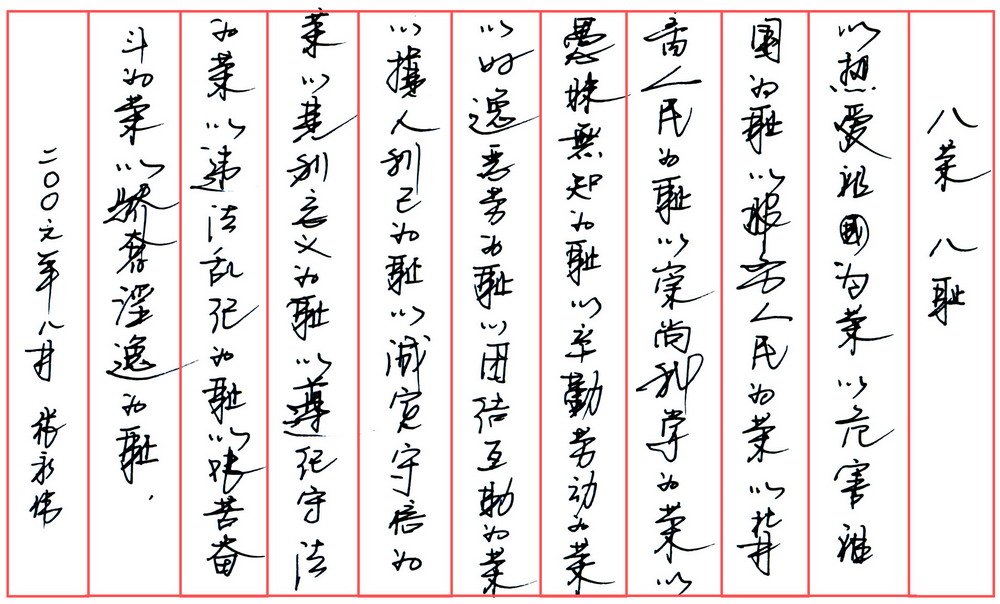 八荣八耻
以热爱祖國为荣以危害祖
國为耻以服务人民为荣以背
离人民为耻以崇尚科学为荣以
愚昧無知为耻以辛勤劳动为荣
以好逸恶劳为耻以团结互助为荣
以损人利己为耻以诚实守信为
荣以见利忘义为耻以遵纪守法
为荣以违法乱纪为耻以艰苦奋
斗为荣以骄奢淫逸为耻.
二〇〇六年八月 张永伟